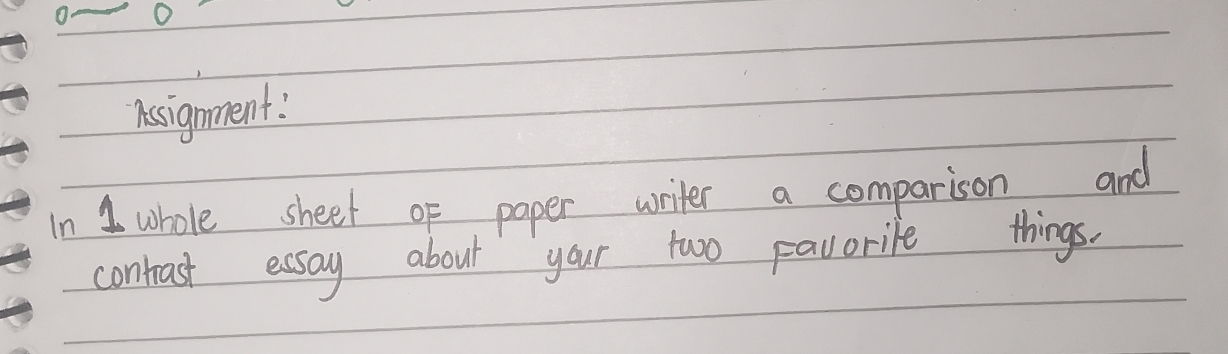 Assignment:
In 1 whole sheet of paper writer a comparison and
contrast essay about your two favorite things.